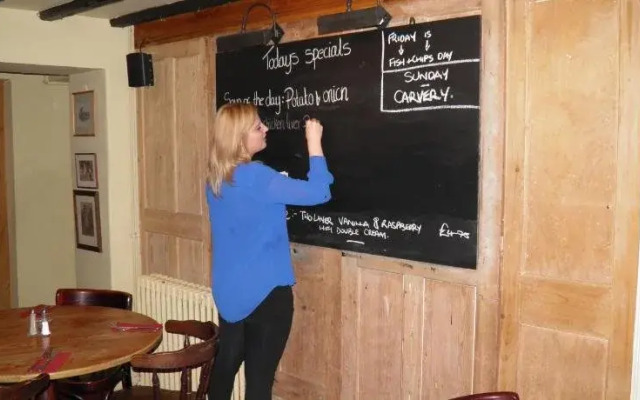 Todays Specials
FRIDAY IS
FISH & CHIPS DAY
SUNDAY
CARVERY.
Soup of the day: Potato & onion
chicken liver
:- TWO LAYER VANILLA & RASPBERRY £4.75
DOUBLE CREAM.